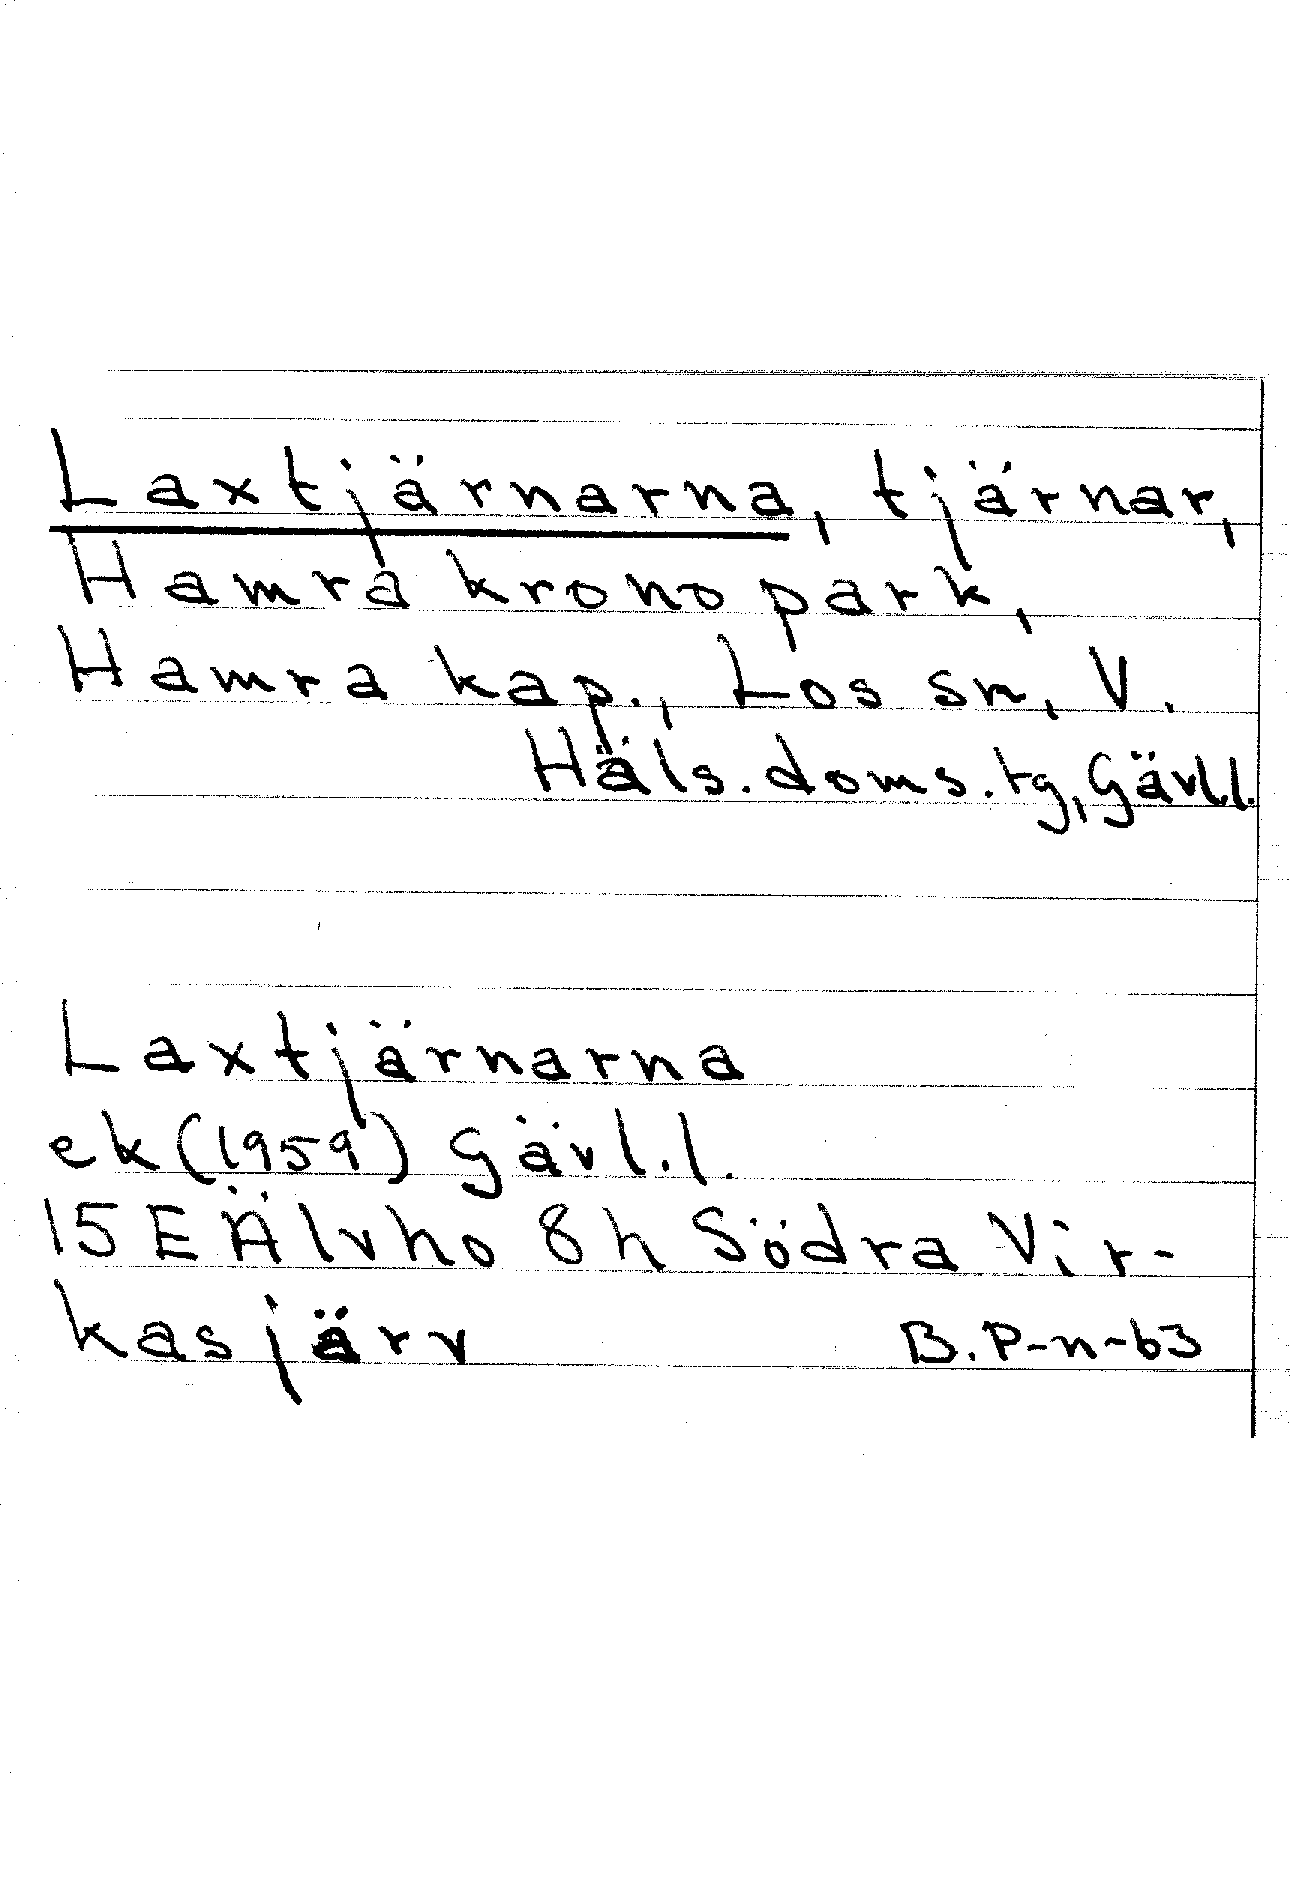 Laxtjärnarna, tjärnar,
Hamra kronopark,
Hamra kap., Los sn, V.
Häls. doms. tg, Gävl.l.
Laxtjärnarna
ek (1959) Gävl.l.
15 E Älvho 8 h Södra Vir-
kasjärv B.P-n-63